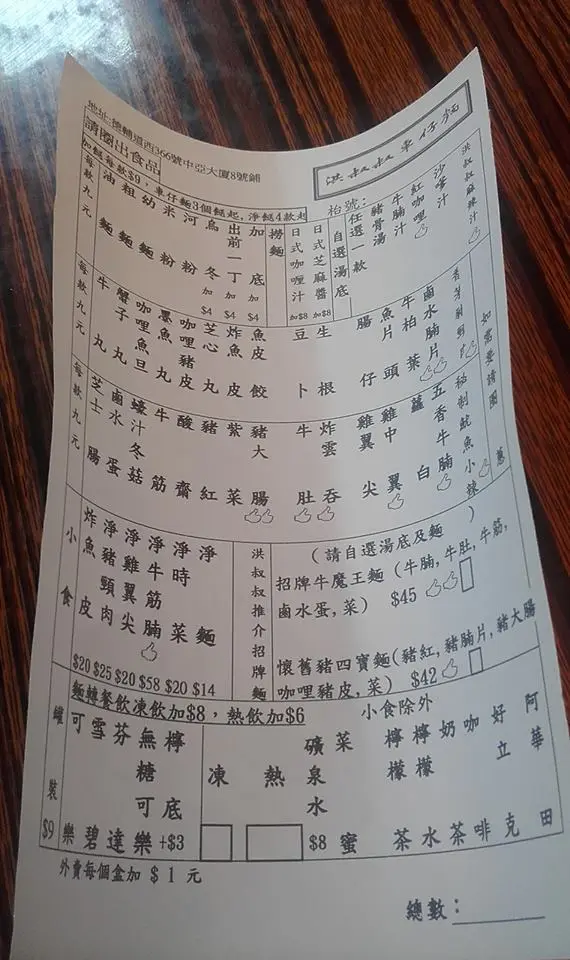 地址:德輔道西366號中亞大廈8號鋪
洪叔叔車仔麵
請圈出食品
枱號:
加餸每款$9，車仔麵3個餸起，淨餸4款起
每款九元
油麵
粗麵
幼麵
米粉
河粉
烏冬 加$4
出前一丁 加$4
加底 加$4
撈麵
日式咖喱汁 加$8
日式芝麻醬 加$8
自選湯底
任選一款
豬骨湯
牛腩汁
紅咖喱
沙嗲汁
洪叔叔麻辣汁
每款九元
牛丸
蟹子丸
咖哩魚旦
墨丸
咖哩豬皮
芝心丸
炸魚皮
魚皮餃
豆卜
生根
腸仔
魚片頭
牛柏葉
鹵水腩片
如需要請圈
葱
每款九元
芝士腸
鹵水蛋
蠔汁冬菇
牛筋
酸齋
豬紅
紫菜
豬大腸
牛肚
炸雲吞
雞翼尖
雞中翼
蘿白
五香牛腩
秘制魷魚
小辣
小食
炸魚皮 $20
淨豬頸肉 $25
淨雞翼尖 $20
淨牛筋腩 $58
淨時菜 $20
淨麵 $14
洪叔叔推介招牌麵
(請自選湯底及麵 )
招牌牛魔王麵(牛腩,牛肚,牛筋,
鹵水蛋,菜) $45
懷舊豬四寶麵(豬紅,豬腩片,豬大腸
咖哩豬皮,菜) $42
麵轉餐飲凍飲加$8，熱飲加$6
小食除外
罐裝 $9
可樂
雪碧
芬達
無糖可樂
檸底 +$3
凍
熱
礦泉水 $8
菜蜜
檸檬茶
檸檬水
奶茶
咖啡
好立克
阿華田
外賣每個盒加 $ 1 元
總數: